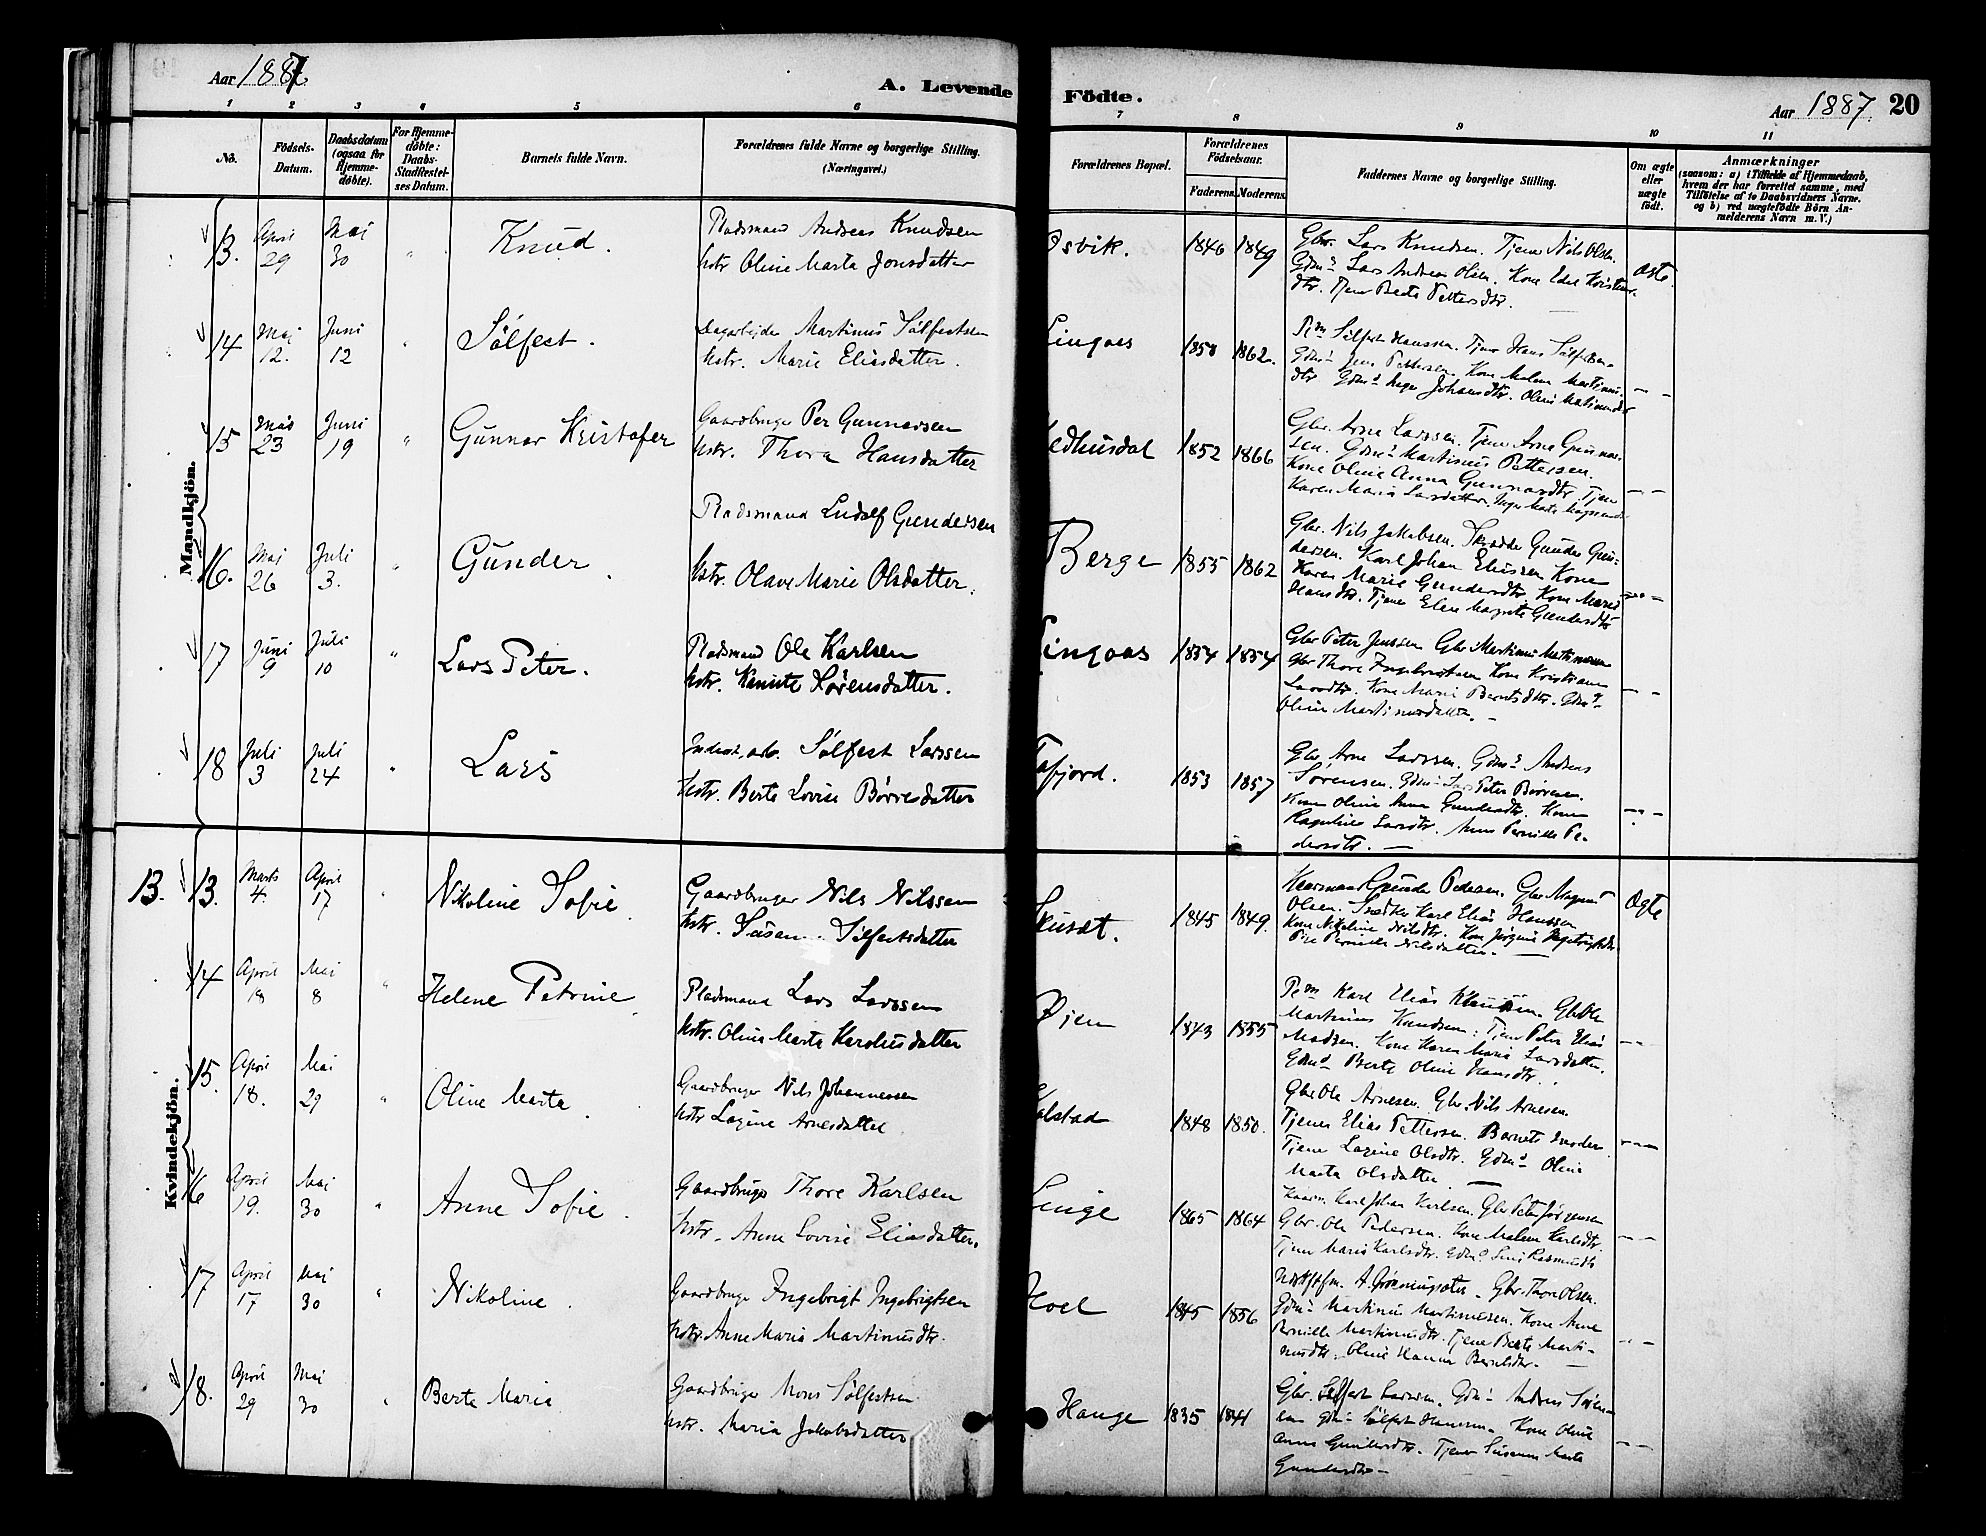 Aar 1887
A. Levende
Födte.
Aar 1887. 20
1 2 3 4 5 6 7 8 9 10 11
No.
Födsels-
Datum.
Daabsdatum
(ogsaa for
Hjemme-
döbte).
For Hjemme-
döbte:
Daabs-
Stadfæstel-
ses Datum.
Barnets fulde Navn.
Forældrenes fulde Navne og borgerlige Stilling.
(Næringsvei.)
Forældrenes Bopæl.
Forældrenes
Födselsaar.
Faderens. Moderens.
Faddernes Navne og borgerlige Stilling.
Om ægte
eller
uægte
födt.
Anmærkninger
(saasom: a) i Tilfælde af Hjemmedaab,
hvem der har forrettet samme, med
Tilföielse af to Daabsvidners Navne.
og b) ved uægtefödte Börn An-
melderens Navn m. V.)
Mandkjön.
13. April 29 Mai 30 " Knud.
Pladsmand Andreas Knudsen
hstr. Oline Marta Jonsdatter
Osvik. 1846 1849
Gbr. Lars Knudsen. Tjener Nils Olsen.
Gdms Lars Andreas Olsen. Kone Edel Kristens-
dtr. Tjener Berte Pettersdtr.
Ægte.
14 Mai 12. Juni 12 " Sølfest.
Dagarbejder Martinus Sølfestsen
hstr. Marie Eliasdatter.
Lingaas 1850 1862.
Pm Sølfest Hanssen. Tjener Hans Sølfestsen.
Gdms Jens Pettersen. Kone Malene Martinus-
dtr. Gdms Inger Johansdtr. Oline Martinusdtr
— —
15 Mai 23 Juni 19 " Gunnar Kristofer
Gaardbruger Per Gunnarsen
hstr. Thora Hansdatter
edhusdal 1852 1866
Gbr. Arne Larssen. Tjener Arne Gunnar-
sen. Gdms Martinus Pettersen.
Kone Oline Anna Gunnarsdtr. Tjener
Karen Maria Larsdatter.
— —
16. Mai 26 Juli 3. " Gunder.
Pladsmand Ludolf Gundersen
hstr. Olave Marie Olsdatter.
Berge 1855 1862
Gbr. Nils Jakobsen. Skrædder Gunder Gun-
dersen. Karl Johan Eliassen Kone
Karen Marie Gundersdtr. Kone Maria
Hansdtr. Tjener Elen Margrete Gundersdtr
— —
17 Juni 9 Juli 10 " Lars Peter.
Pladsmand Ole Karlsen
hstr. Kanute Sørensdatter.
Lingaas 1854 1854
Gbr Peter Jenssen Gbr. Martinus Martinussen
Gbr Thore Ingebrigtsen Kone Kristiane
Larsdtr. Kone Marie Berntsdtr. Gdms
Oline Martinusdatter. —
— —
18 Juli 3 Juli 24 " Lars
Indust. arb. Sølfest Larssen
hstr. Berte Lovise Børresdatter
Tafjord. 1853 1857
Gbr Arne Larssen. Gdms Andreas
Sørensen. Gdms Lars Peter Børresen.
Kone Oline Anna Gundersdtr. Kone
Larsdtr. Anne Pernille Pe-
dersdtr. —
— —
Kvindekjön.
13. 13. Marts 4. April 17 " Nikoline Sofie.
Gaardbruger Nils Nilssen
hstr. Susen Sølfestsdatter
Skuset. 1845 1849.
Kaarmand Gunder Pedersen. Gbr Magnus
Olsen. Snedker Karl Elias Hanssen
Kone Nikoline Nilsdtr. Kone Jørgine Ingebrigtsdtr
Pige Pernille Nilsdatter. —
Ægte
14 April 18 Mai 8 " Helene Petrine.
Pladsmand Lars Larssen
hstr. Oline Marta Karolusdatter
Øjen 1843 1855
Pm Karl Elias Klausen. Gbr Ole
Martinus Knudsen. Tjener Peter Elias
Madsen. Kone Karen Maria Larsdatter.
Gdms Berte Oline Hansdtr.
— —
15. April 18. Mai 29 " Oline Marta.
Gaardbruger Nils Johannessen
hstr Lagine Arnesdatter.
Kolstad 1848 1850.
Gbr Ole Arnesen. Gbr. Nils Arnesen.
Tjener Elias Pettersen. Barnets Moder
Tjener Lagine Olsdtr. Gdms Oline
Marta Olsdatter. —
— —
16 April 19. Mai 30 " Anne Sofie.
Gaardbruger Thore Karlsen
hstr. Anne Lovise Eliasdatter.
Linge 1865 1864
Kaarm. Karl Johan Karlsen. Gbr Peter Jørgensen
Gbr. Ole Pedersen. Kone Malene Karlsdtr
Tjener Maria Karlsdtr. Gdms Sina Rasmusdtr
— —
17 April 17 Mai 30 " Nikoline.
Gaardbruger Ingebrigt Ingebrigtsen
hstr. Anne Maria Martinusdtr.
Hoel 1845 1856
A. Grønningsæter. Gbr. Thore Olsen.
Gdms Martinus Martinussen. Kone Anne
Pernille Martinusdtr. Tjener Berte Marti-
nusdtr. Oline Hanna Berntsdtr. —
— —
18. April 29 Mai 30 " Berte Maria
Gaardbruger Mons Sølfestsen
hstr. Maria Jakobsdatter
Hauge 1835 1841
Gbr. Sølfest Larssen. Gdms Andreas Søren-
sen Gdms Sølfest Hanssen. Kone Oline
Anna Gundersdtr. Tjener Susanne Marta
Gundersdtr —
— —